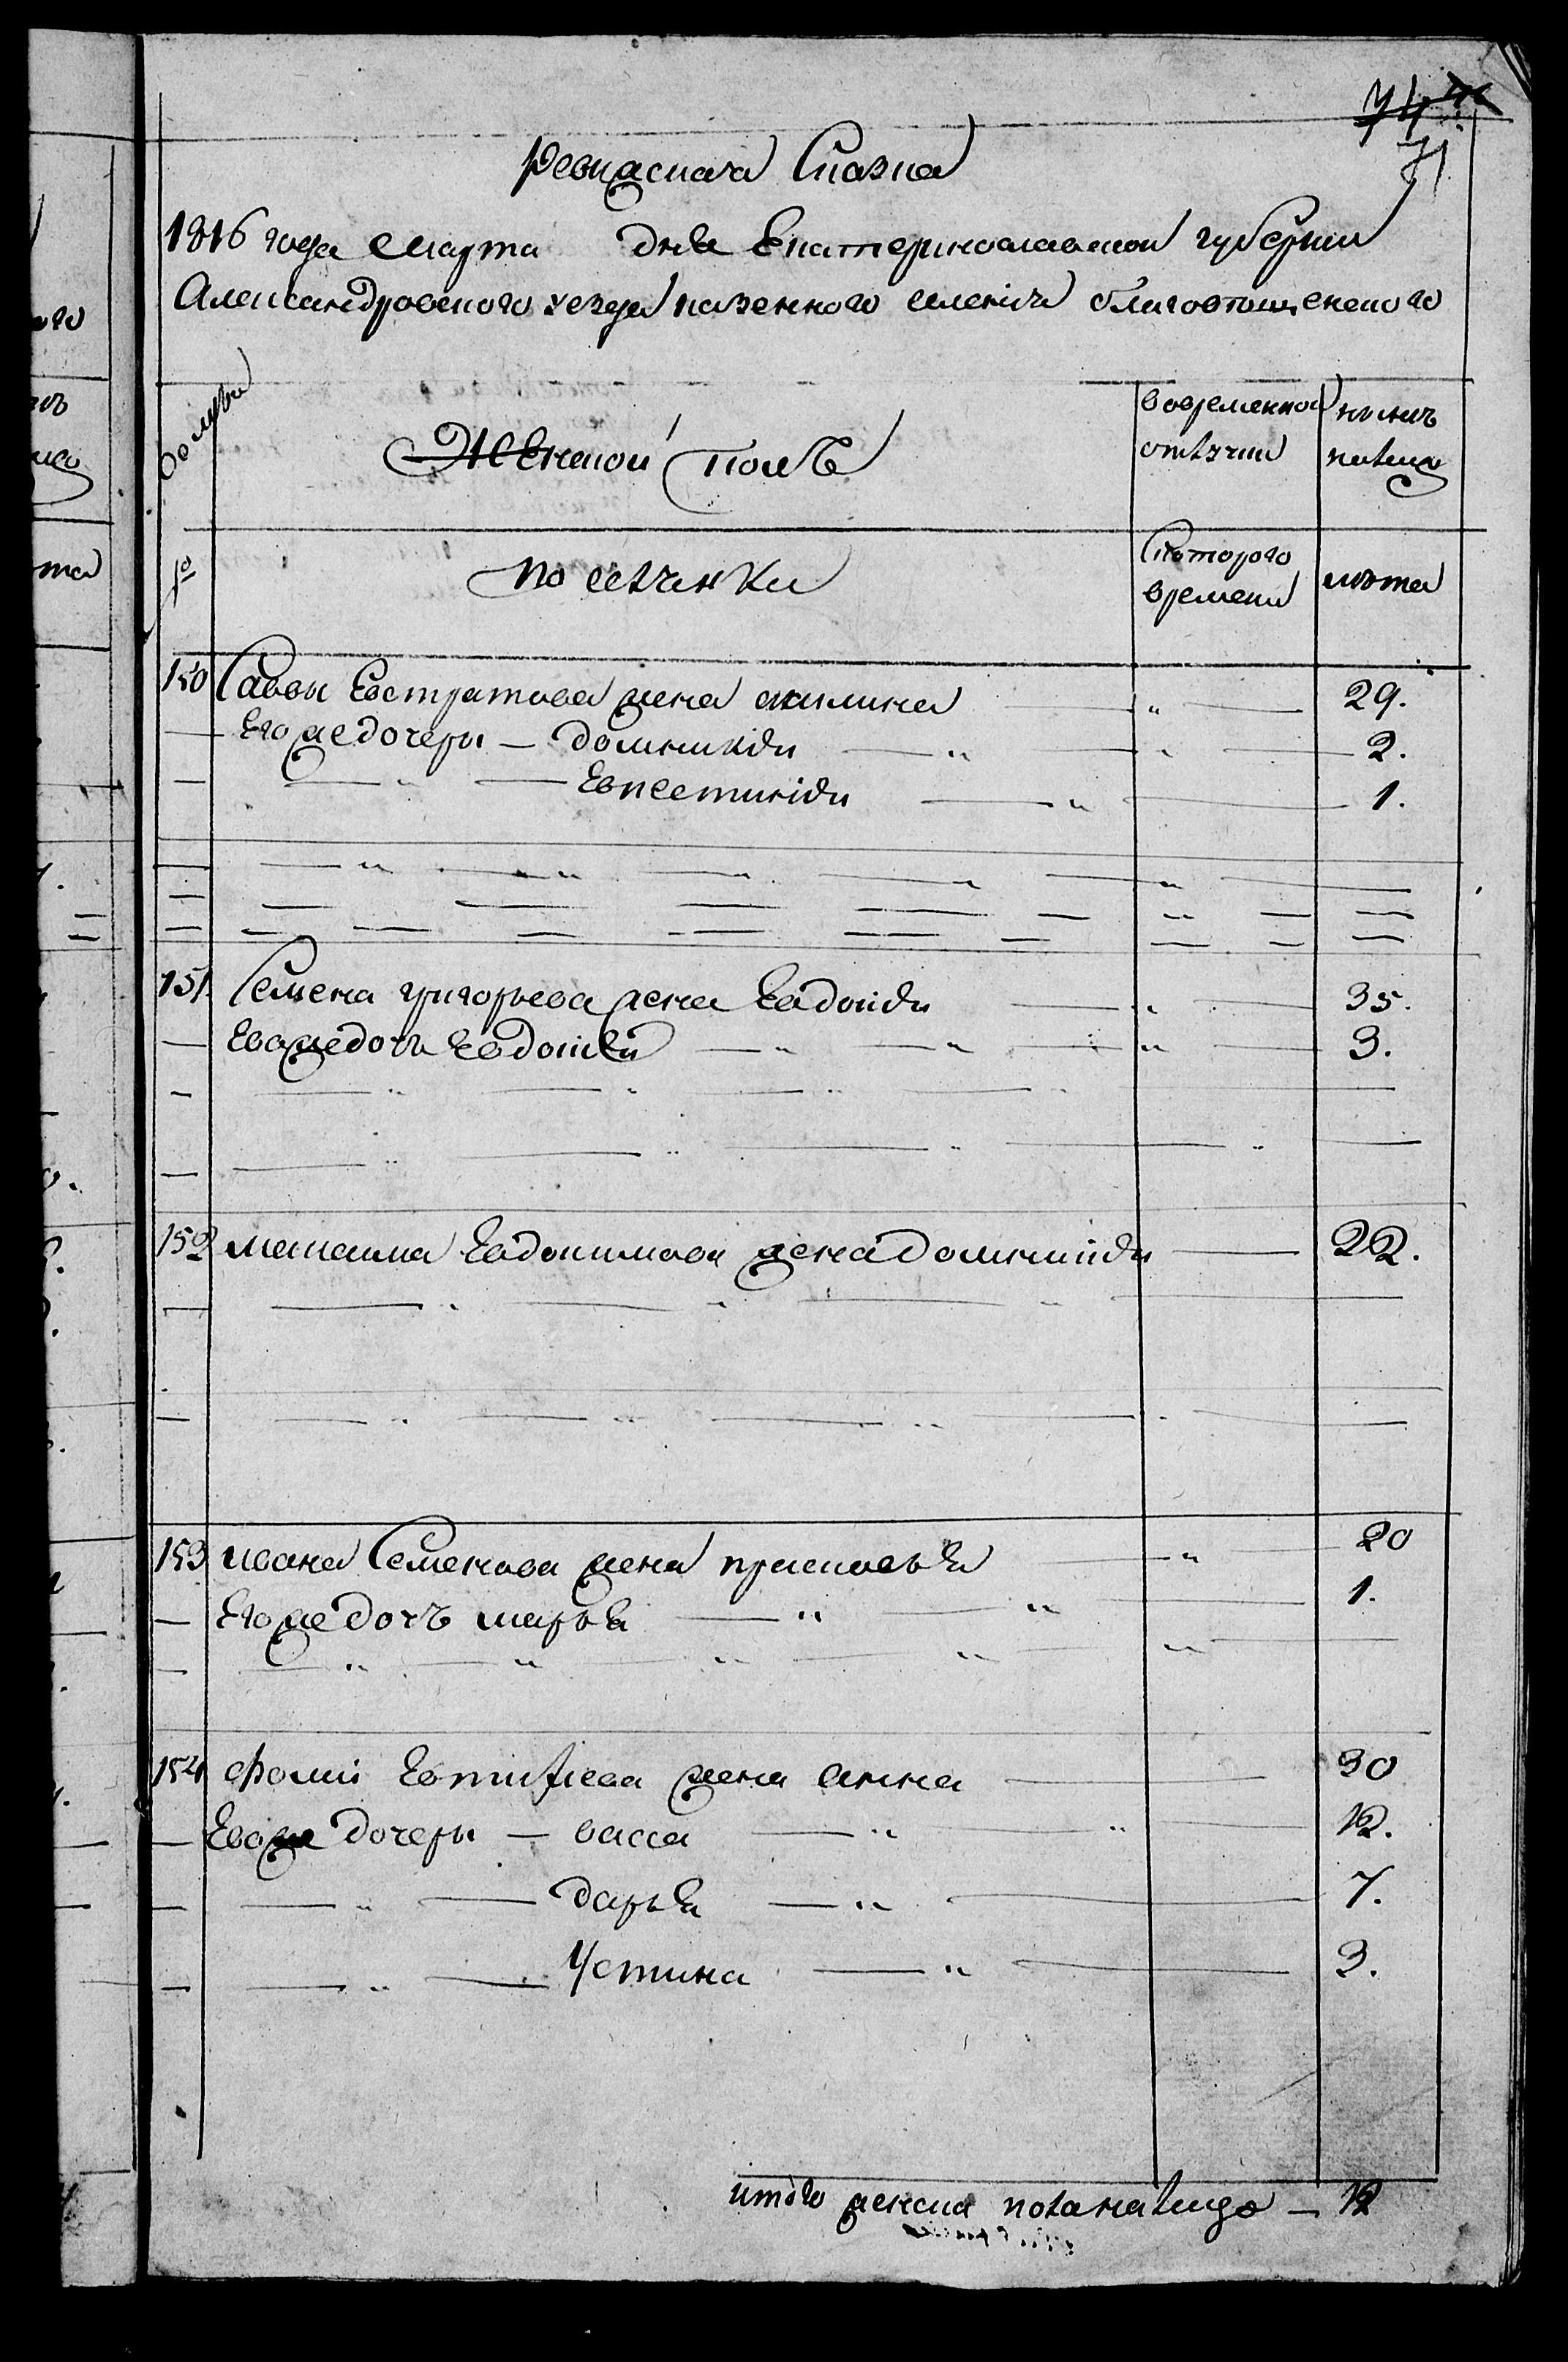 71
Ревизская Сказка
1816 года Марта дня Екатеринославской губернии
Александровского уезда казенного селения благовещенского
семьи
Женской полъ
вовременной
отлучки
нынѣ
налицо
№
поселянки
Скоторого
времени
лѣта
150 Саввы Евстратова жена акилина — " — 29.
— Его же дочеры — домникия — " — " — 2.
— " — Евпестикия — " — 1.
151. Семена григорьева жена Евдокия — " — 35.
— Его же дочь Евдокия — " — " — " — 3.
152 Максима Евдокимова жена домникия — 22.
153 ивана Семенова жена прасковья — " — 20
— Его же дочъ марья — " — " — 1.
154 Фомы Евтифиева жена анна — 30
— Его же дочеры — васса — " — " — 12.
— " — дарья — " — 7.
— " — Устина — " — 3.
итого женска пола налицо — 12